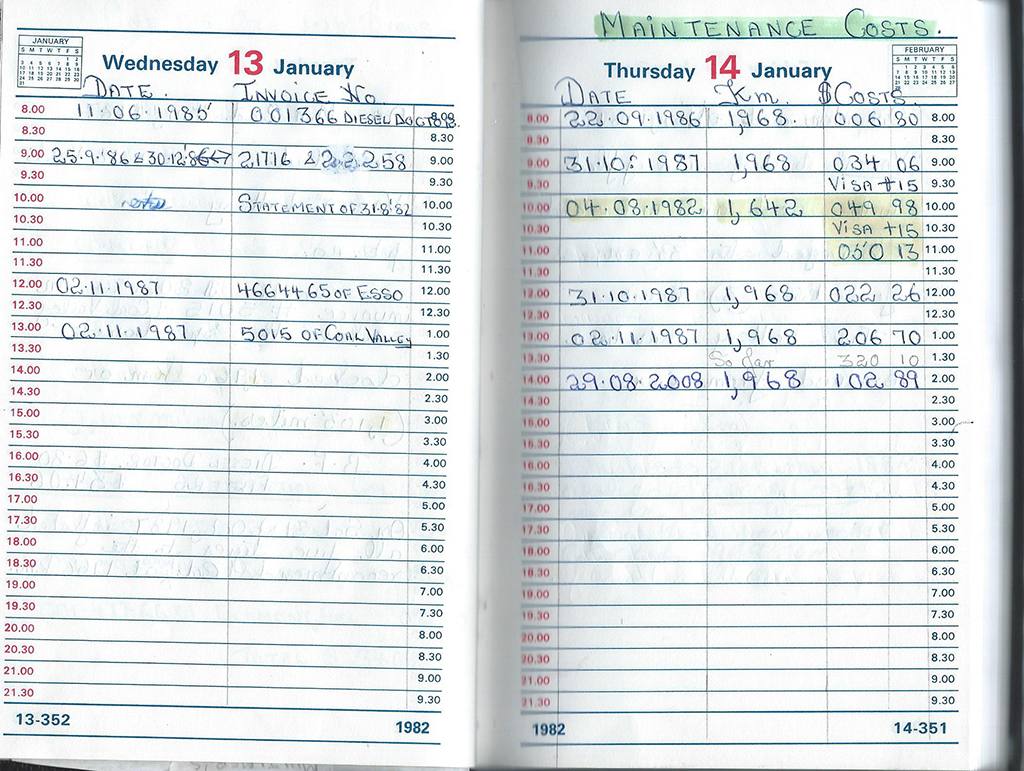 JANUARY
Wednesday 13 January
DATE. INVOICE No.
8.00 11.06.1985 001366 DIESEL DOCTOR. 8.00
8.30 8.30
9.00 25.9.'86 & 30.12.86 21716 & 222258 9.00
9.30 9.30
10.00 STATEMENT OF 31.8.'82 10.00
10.30 10.30
11.00 11.00
11.30 11.30
12.00 02.11.1987 4664465 OF ESSO 12.00
12.30 12.30
13.00 02.11.1987 5015 OF COAL VALLEY 1.00
13.30 1.30
14.00 2.00
14.30 2.30
15.00 3.00
15.30 3.30
16.00 4.00
16.30 4.30
17.00 5.00
17.30 5.30
18.00 6.00
18.30 6.30
19.00 7.00
19.30 7.30
20.00 8.00
20.30 8.30
21.00 9.00
21.30 9.30
13-352 1982
MAINTENANCE COSTS.
FEBRUARY
Thursday 14 January
DATE Km. $COSTS.
8.00 22.09.1986 1,968. 006 80 8.00
8.30 8.30
9.00 31.10.1987 1,968 034 06 9.00
9.30 VISA +15 9.30
10.00 04.08.1982 1,642 049 98 10.00
10.30 VISA +15 10.30
11.00 050 13 11.00
11.30 11.30
12.00 31.10.1987 1,968 022 26 12.00
12.30 12.30
13.00 02.11.1987 1,968 206 70 1.00
13.30 So far 320 10 1.30
14.00 29.08.2008 1,968 102 89 2.00
14.30 2.30
15.00 3.00
15.30 3.30
16.00 4.00
16.30 4.30
17.00 5.00
17.30 5.30
18.00 6.00
18.30 6.30
19.00 7.00
19.30 7.30
20.00 8.00
20.30 8.30
21.00 9.00
21.30 9.30
1982 14-351